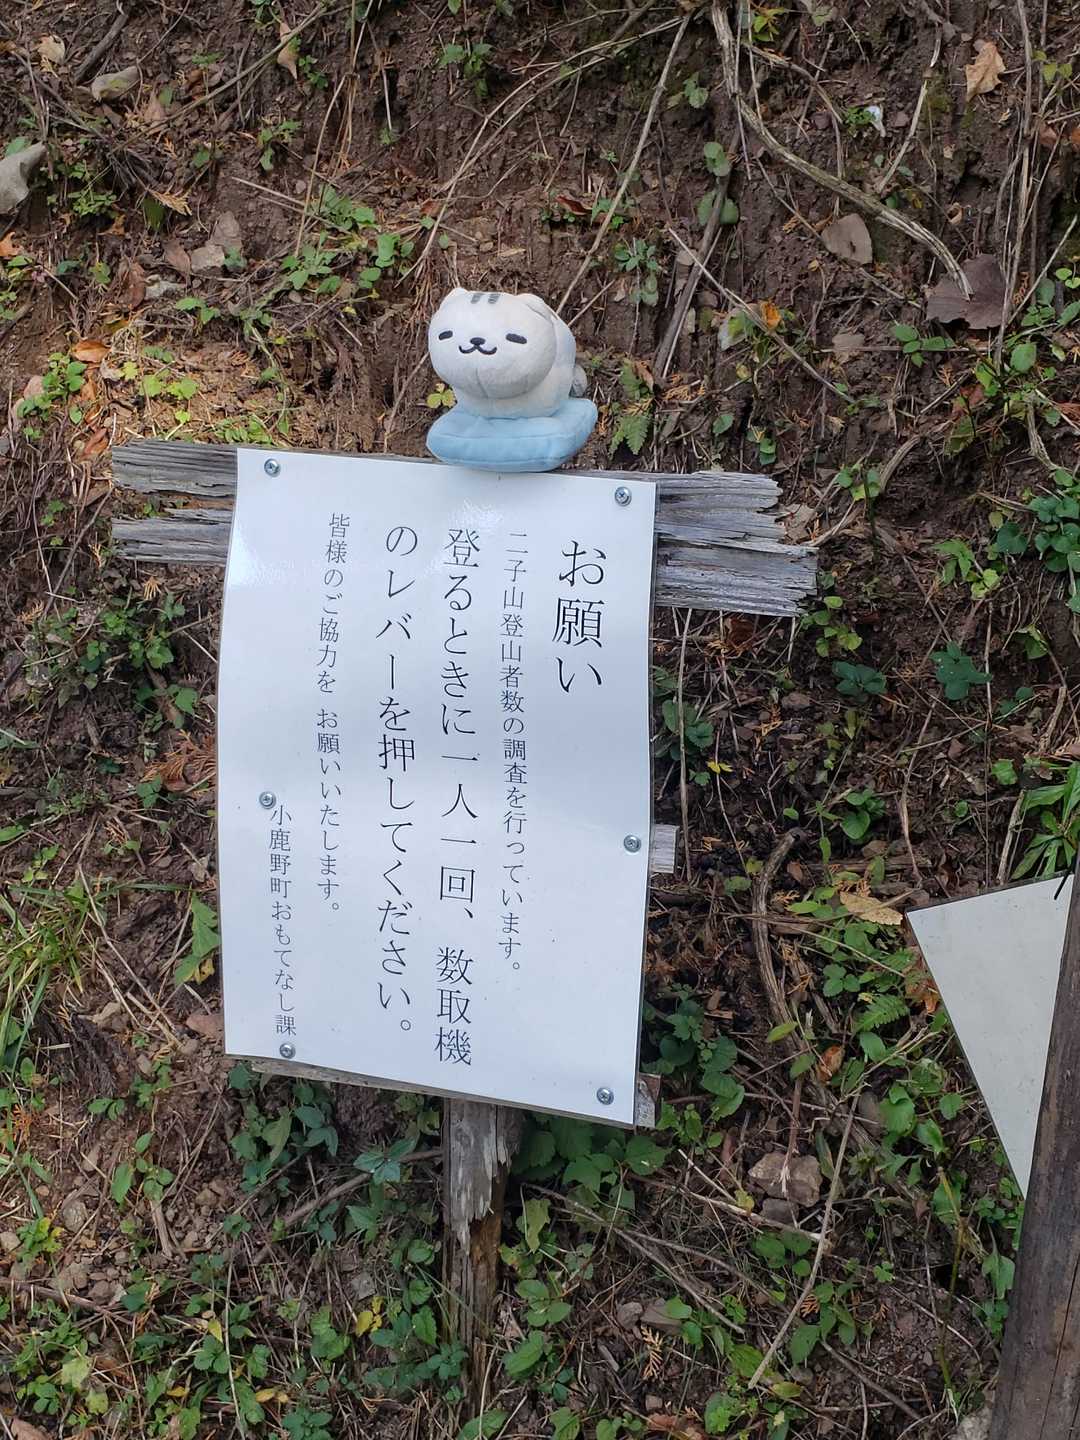 お願い
二子山登山者数の調査を行っています。
登るときに一人一回、数取機
のレバーを押してください。
皆様のご協力を お願いいたします。
小鹿野町おもてなし課